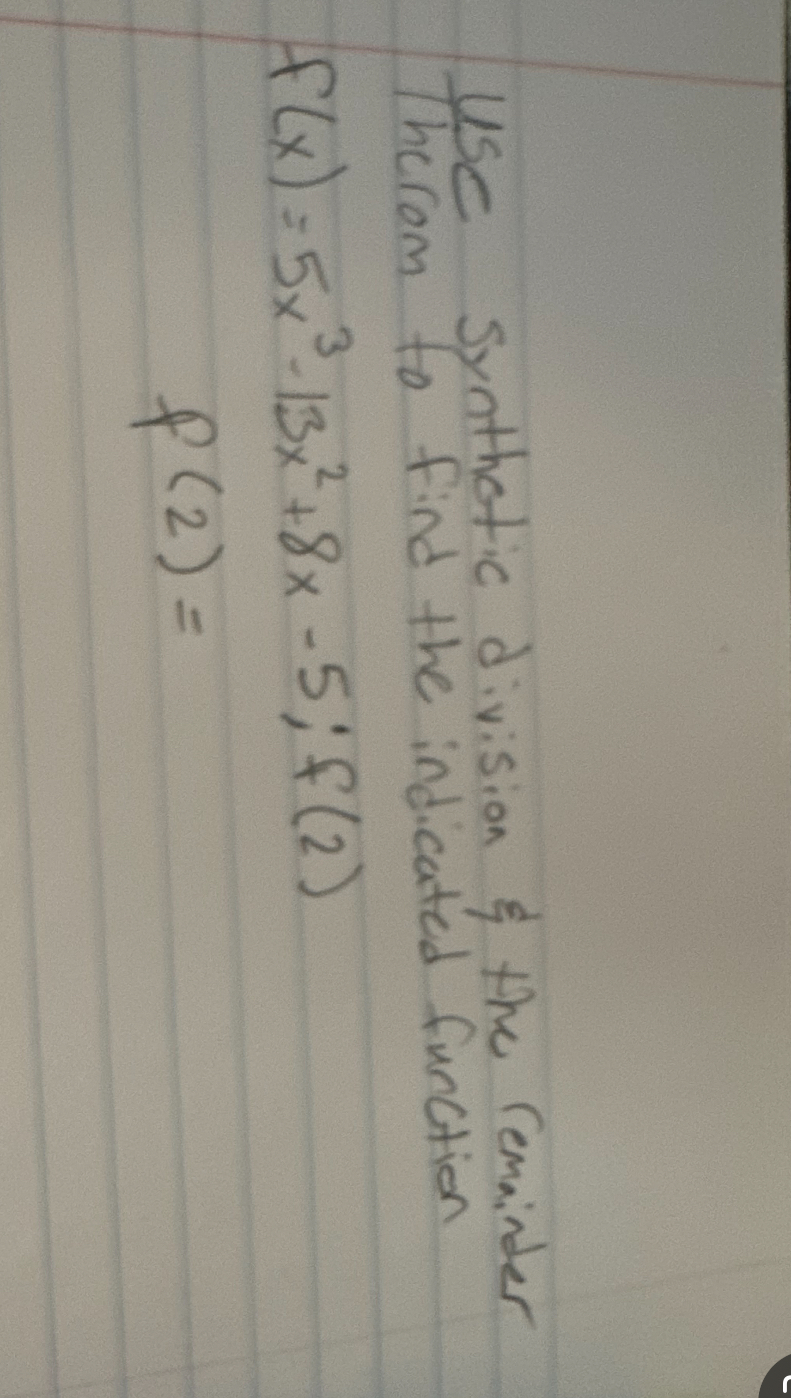 Use synthetic division & the remainder
Therom to find the indicated function
f(x) = 5x³ - 13x² + 8x - 5; f(2)
f(2) =